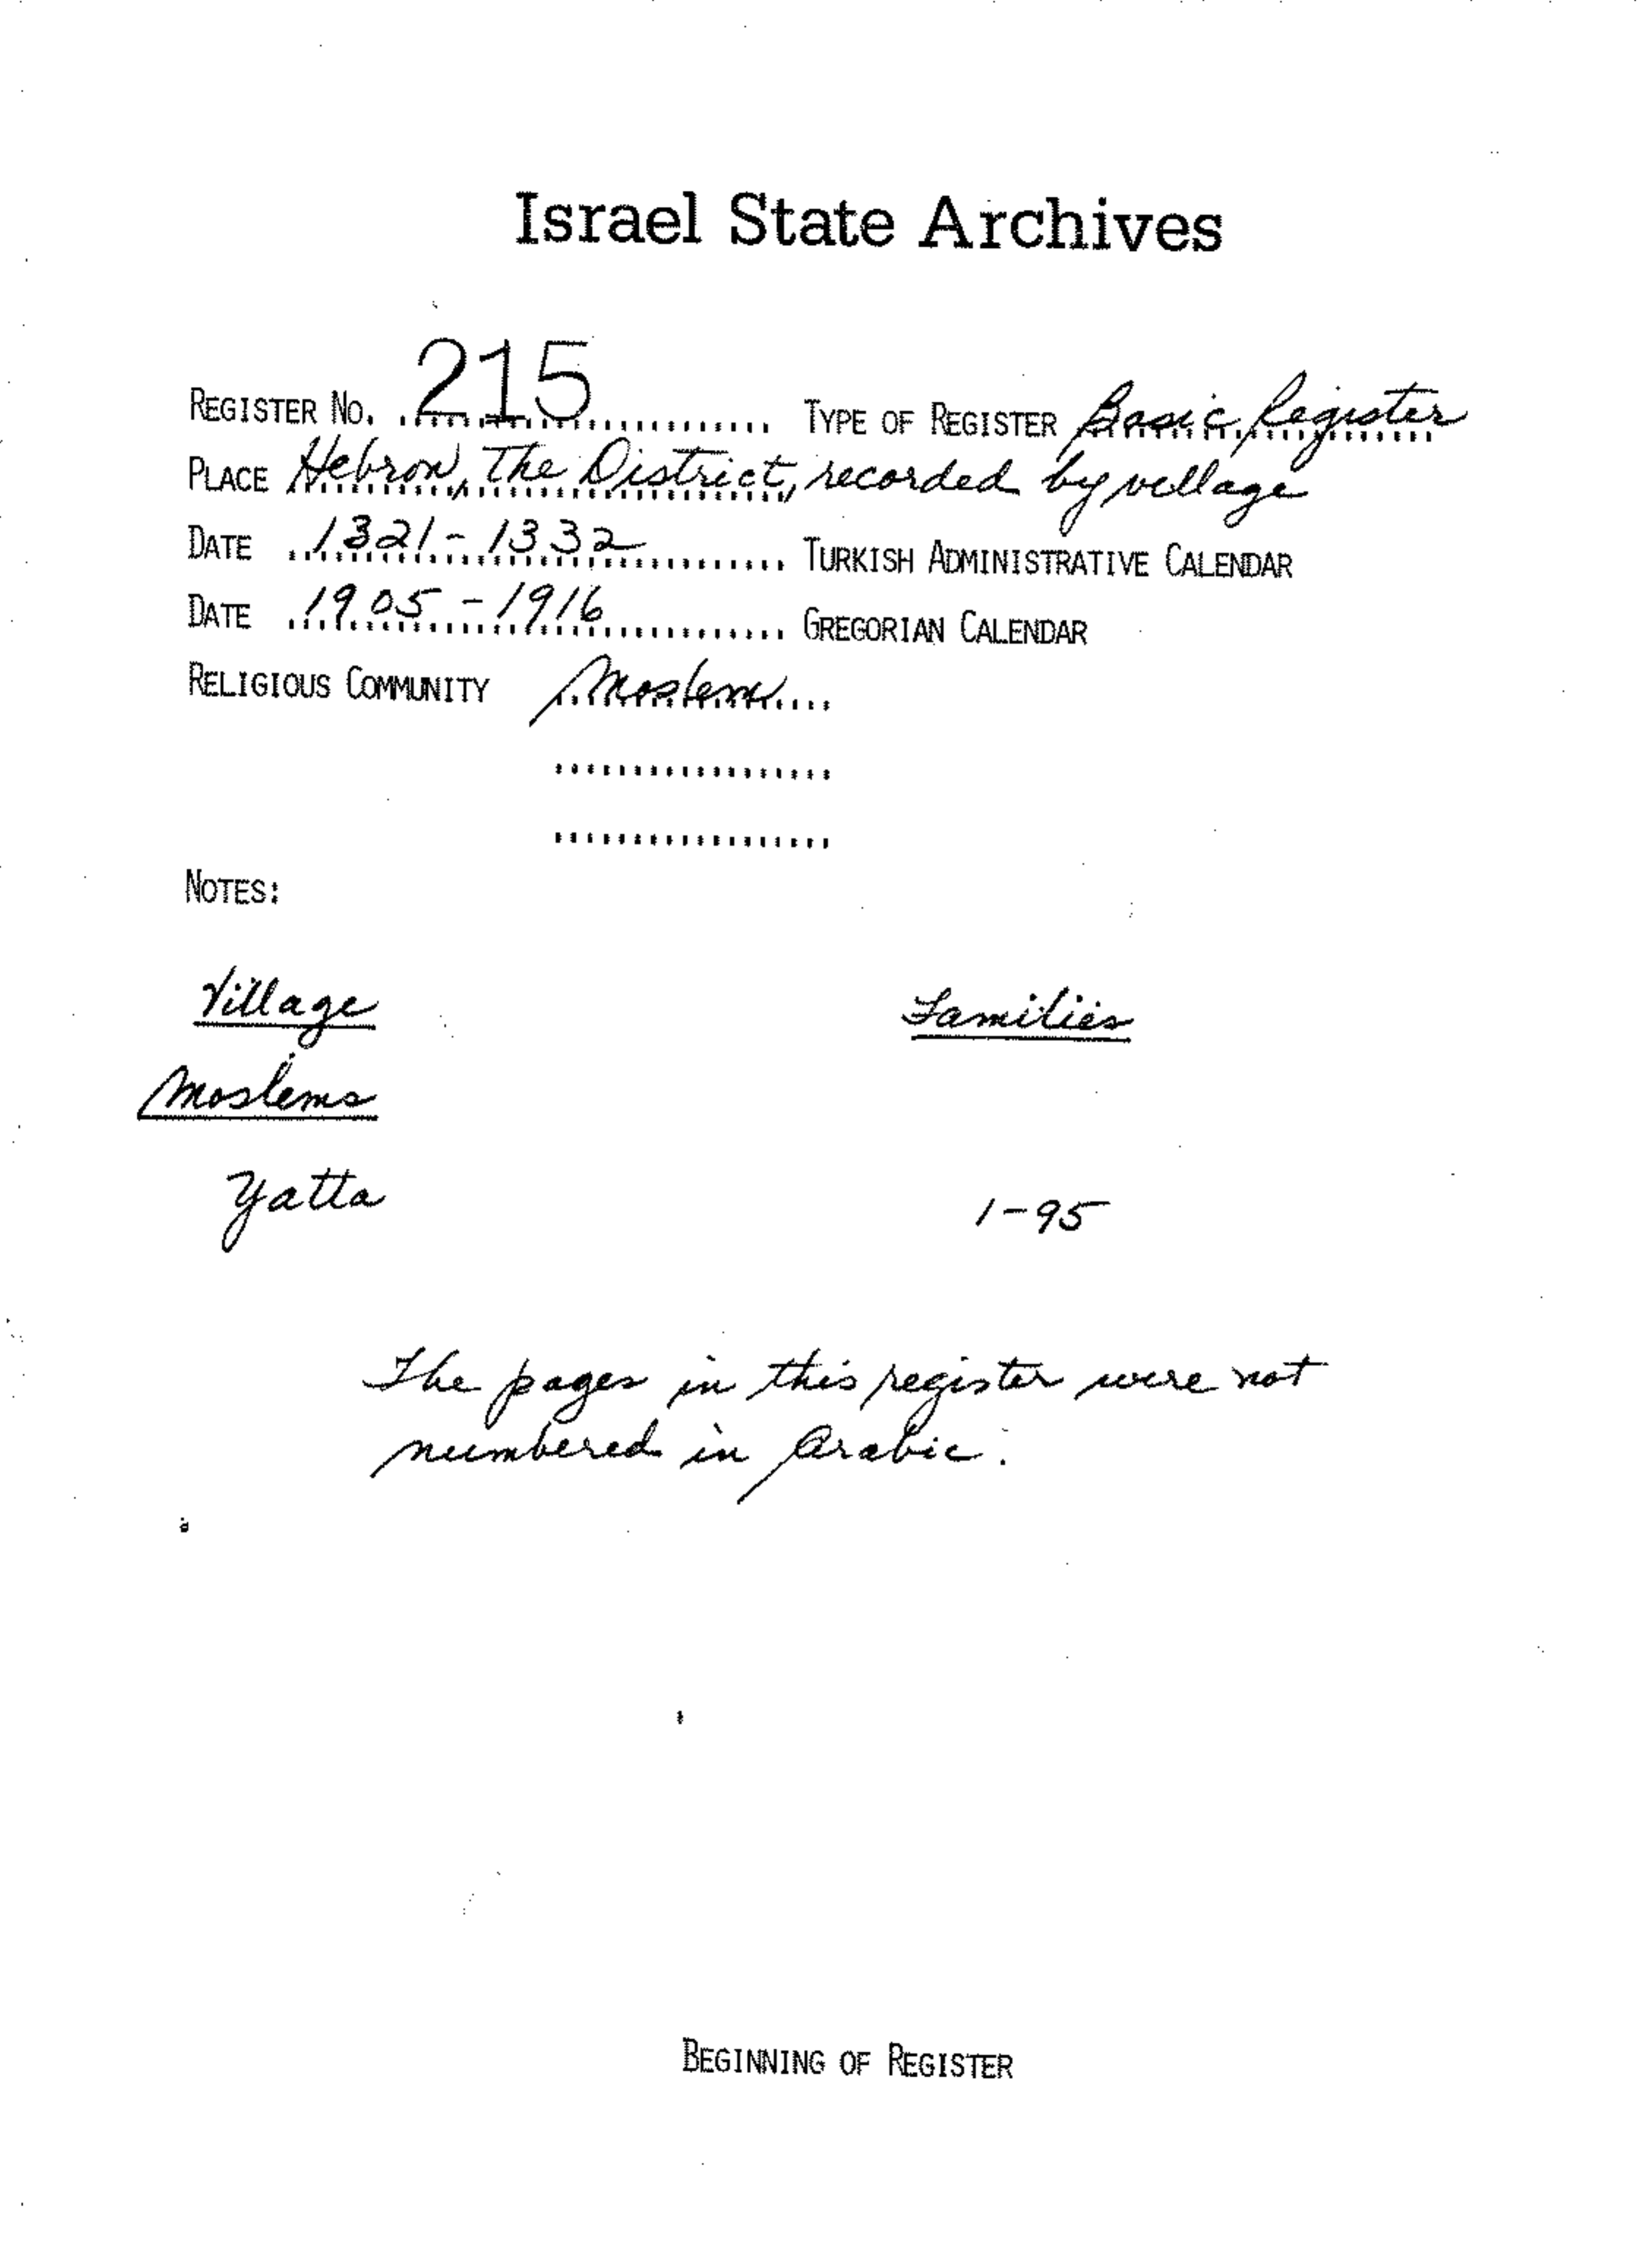 Israel State Archives
REGISTER NO. 215 TYPE OF REGISTER Basic Register
PLACE Hebron, The District, recorded by village
DATE 1321-1332 TURKISH ADMINISTRATIVE CALENDAR
DATE 1905-1916 GREGORIAN CALENDAR
RELIGIOUS COMMUNITY Moslem
NOTES:
Village Families
Moslems
Yatta 1-95
The pages in this register were not
numbered in Arabic.
BEGINNING OF REGISTER